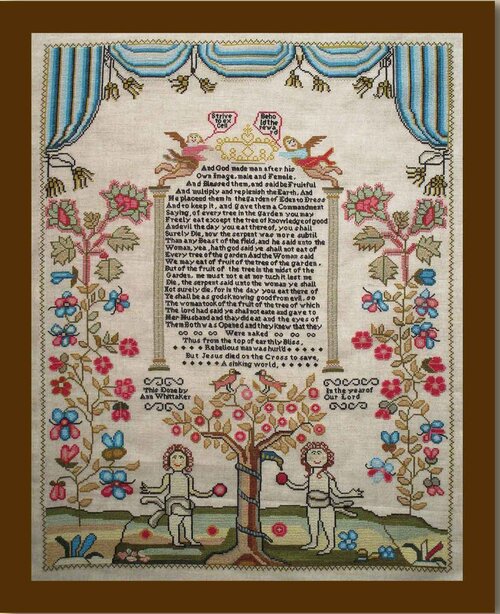 Strive
to ex
cell
Beho
ld the
rewa
rd
And God made man after his
Own Image, male and Female,
And Blessed them, and said be Fruitful
And multiply and replenish the Earth, And
He placened them in the Garden of Eden to Dress
And to keep it, and gave them a Commandment
Saying, of every tree in the Garden you may
Freely eat except the tree of Knowledge of good
And evil the day you eat thereof, you shall
Surely Die, now the serpent was more subtil
Than any Beast of the field, and he said unto the
Woman, yea, hath god said ye shall not eat of
Every tree of the garden And the Woman said
We may eat of fruit of the trees of the garden,
But of the fruit of the tree in the midst of the
Garden, me must not eat nor tuch it lest me
Die, the serpent said unto the woman ye shall
Not surely die, for in the day you eat there of
Ye shall be as gods knowing good from evil,
The woman took of the fruit of the tree of which
The lord had said ye shal not eate and gave to
Her Husband and they did eat and the eyes of
Them Both was Opened and they knew that they
Were naked
Thus from the top of earthly Bliss,
Rebelious man was hurl'd
But Jesus died on the Cross to save,
A sinking world,
This Done by
Ann Whittaker
In the year of
Our Lord